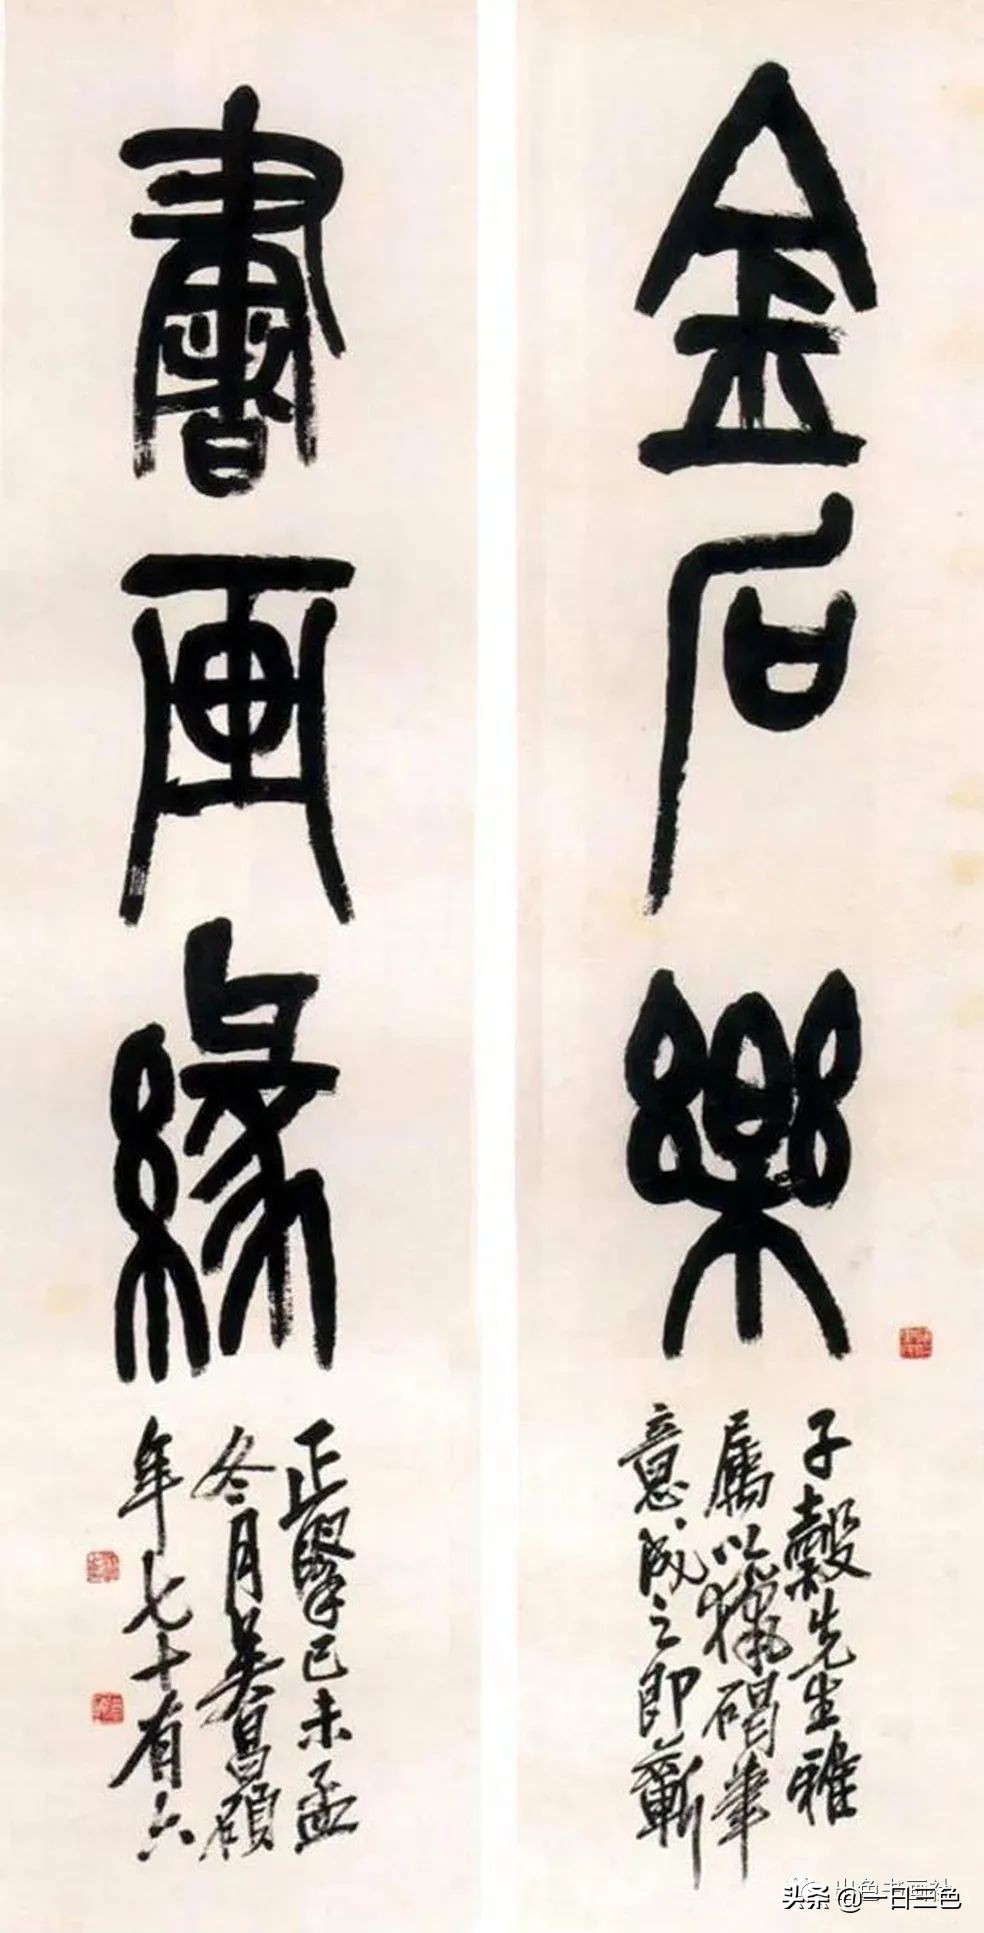 金石樂
書画緣
子穀先生雅
屬以獵碣筆
意成之即蘄
正擥己未孟
冬月吳昌碩
年七十有六
头条 @一日三色